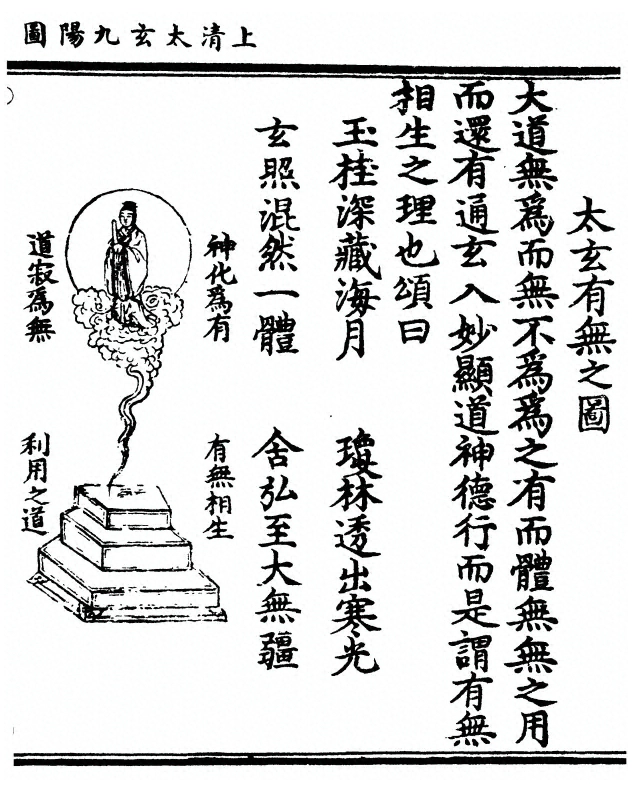 上清太玄九陽圖
太玄有無之圖
大道無爲而無不爲爲之有而體無無之用
而還有通玄入妙顯道神德行而是謂有無
相生之理也頌曰
玉桂深藏海月　瓊林透出寒光
玄照混然一體　舍弘至大無疆
神化爲有　有無相生
道寂爲無　利用之道